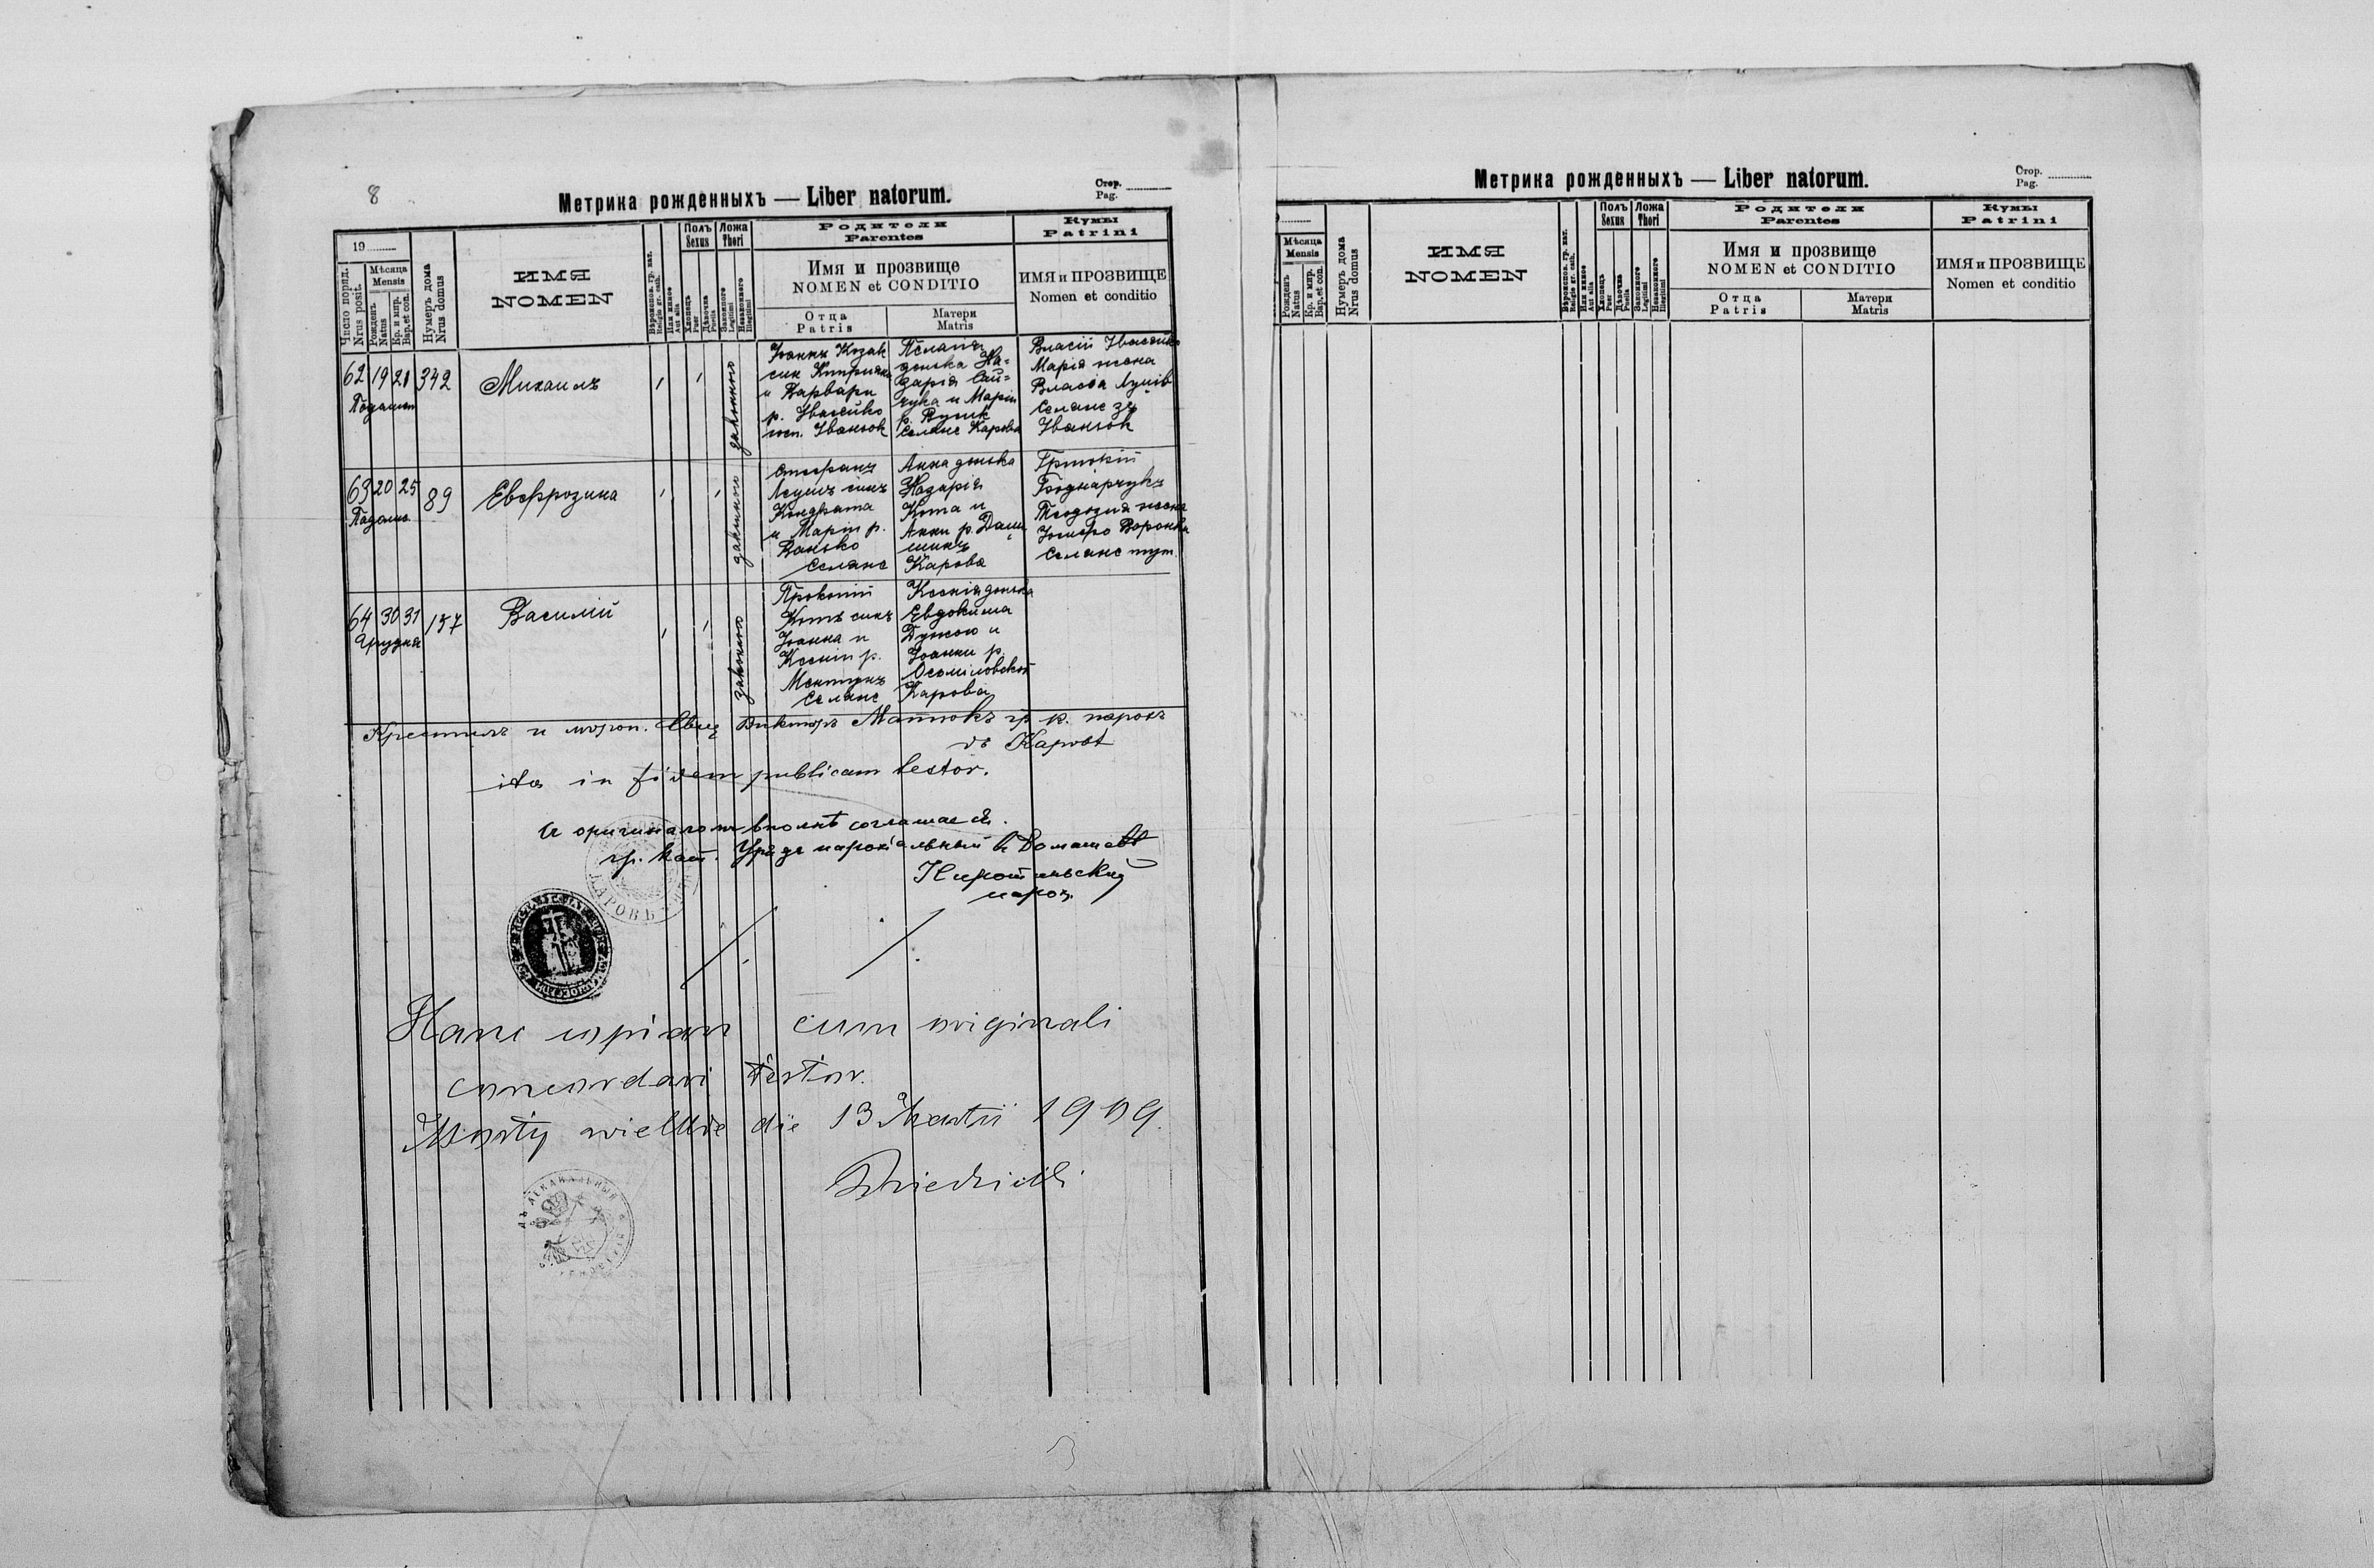 8
Метрика рожденныхъ — Liber natorum.
Стор.
Pag.
19
Число поряд.
Nrus posit.
Мѣсяца
Mensis
Рожденъ
Natus
Кр. и мѵр.
Bap. et con.
Нумеръ дома
Nrus domus
ИМЯ
NOMEN
Вѣроиспов. гр. кат.
Religio gr. cath.
Или инное
Aut alia
Полъ
Sexus
Хлопецъ
Puer
Дѣвочка
Puella
Ложа
Thori
Законного
Legitimi
Незаконного
Illegitimi
Родители
Parentes
Имя и прозвище
NOMEN et CONDITIO
Отца
Patris
Матери
Matris
Кумы
Patrini
ИМЯ и ПРОЗВИЩЕ
Nomen et conditio
62 19 21 342
Михаилъ
законного
Іоаннъ Козак
син
и Варвари
р. Ивасейко
Иваньок
донька На-
зарія
и Маріи
р.
Селяне Карова
Власій
Марія жена
Власа
Селяне зъ
Иваньок
63 20 25 89
Евфрозина
законного
Стефанъ
синъ
Кондрата
и Маріи р.
Ванько
Селяне
Анна донька
Назарія
Кота и
Анни р.
Карова
Григорій
Боднарчукъ
Теодозія жена
Селяне тут.
64 30 31 157
Грудня
Василій
законного
Прокопій
Котъ синъ
Іоанна и
Ксеніи р.
Селяне
Ксенія донька
Евдокима
и
Іоанни р.
Карова
Крестилъ и мѵроп. Свящ Викторъ Матюкъ гр. к. парохъ
въ Каровѣ
ita in fidem publicam testor.
Съ оригиналомъ вполнѣ соглашаеся.
гр. кат. Урядъ парохіальный въ Домашевѣ
парох.
Hanc copiam cum originali
concordari testor.
Mosty wielkie die 13 Martii 1909.
Метрика рожденныхъ — Liber natorum.
Стор.
Pag.
Мѣсяца
Mensis
Рожденъ
Natus
Кр. и мѵр.
Bap. et con.
Нумеръ дома
Nrus domus
ИМЯ
NOMEN
Вѣроиспов. гр. кат.
Religio gr. cath.
Или инное
Aut alia
Полъ
Sexus
Хлопецъ
Puer
Дѣвочка
Puella
Ложа
Thori
Законного
Legitimi
Незаконного
Illegitimi
Родители
Parentes
Имя и прозвище
NOMEN et CONDITIO
Отца
Patris
Матери
Matris
Кумы
Patrini
ИМЯ и ПРОЗВИЩЕ
Nomen et conditio